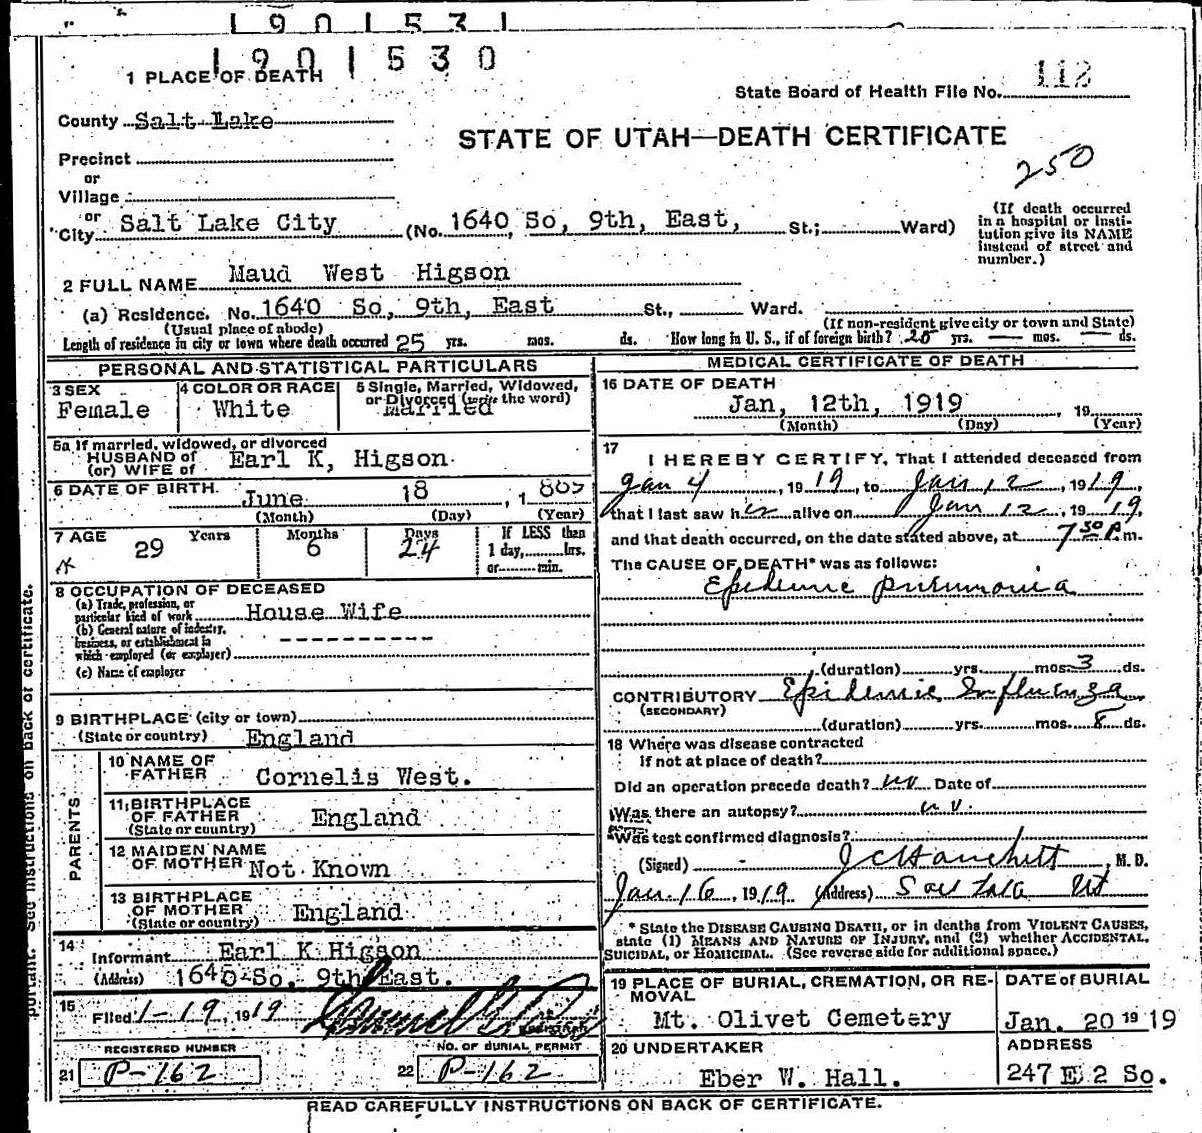 1901531
1901530
1 PLACE OF DEATH
State Board of Health File No. 112
County Salt Lake
STATE OF UTAH—DEATH CERTIFICATE
Precinct
250
or
Village
or
City Salt Lake City (No. 1640 So, 9th, East, St.; Ward)
(If death occurred in a hospital or institution give its NAME instead of street and number.)
2 FULL NAME Maud West Higson
(a) Residence. No. 1640 So, 9th, East St., Ward.
(Usual place of abode) (If non-resident give city or town and State)
Length of residence in city or town where death occurred 25 yrs. mos. ds. How long in U. S., if of foreign birth? 25 yrs. — mos. — ds.
PERSONAL AND STATISTICAL PARTICULARS
3 SEX
Female
4 COLOR OR RACE
White
5 Single, Married, Widowed,
or Divorced (write the word)
Married
5a If married, widowed, or divorced
HUSBAND of
(or) WIFE of Earl K, Higson
6 DATE OF BIRTH. June 18, 1
(Month) (Day) (Year)
7 AGE Years Months Days If LESS than
29 6 24 1 day, hrs.
or min.
8 OCCUPATION OF DECEASED
(a) Trade, profession, or
particular kind of work House Wife
(b) General nature of industry,
business, or establishment in
which employed (or employer)
(c) Name of employer
9 BIRTHPLACE (city or town)
(State or country) England
PARENTS
10 NAME OF
FATHER Cornelis West.
11 BIRTHPLACE
OF FATHER England
(State or country)
12 MAIDEN NAME
OF MOTHER Not Known
13 BIRTHPLACE
OF MOTHER England
(State or country)
14
Informant Earl K Higson
(Address) 1640 So, 9th East.
15
Filed 1-19, 1919
REGISTRAR
REGISTERED NUMBER NO. OF BURIAL PERMIT
21 P-162 22 P-162
MEDICAL CERTIFICATE OF DEATH
16 DATE OF DEATH
Jan, 12th, 1919, 19
(Month) (Day) (Year)
17
I HEREBY CERTIFY, That I attended deceased from
Jan 4, 1919, to Jan 12, 1919,
that I last saw her alive on Jan 12, 1919,
and that death occurred, on the date stated above, at 7 50 P.m.
The CAUSE OF DEATH* was as follows:
Epidemic pneumonia
(duration) yrs. mos. 3 ds.
CONTRIBUTORY Epidemic Influenza
(SECONDARY)
(duration) yrs. mos. 8 ds.
18 Where was disease contracted
if not at place of death?
Did an operation precede death? no Date of
Was there an autopsy? no.
Was test confirmed diagnosis?
(Signed) J C Hanchett, M. D.
Jan. 16, 1919 (Address) Salt Lake Ut
* State the DISEASE CAUSING DEATH, or in deaths from VIOLENT CAUSES,
state (1) MEANS AND NATURE OF INJURY, and (2) whether ACCIDENTAL,
SUICIDAL, or HOMICIDAL. (See reverse side for additional space.)
19 PLACE OF BURIAL, CREMATION, OR RE-
MOVAL
Mt. Olivet Cemetery
DATE OF BURIAL
Jan. 20 1919
20 UNDERTAKER
Eber W. Hall.
ADDRESS
247 E 2 So.
READ CAREFULLY INSTRUCTIONS ON BACK OF CERTIFICATE.
portant. See instructions on back of certificate.